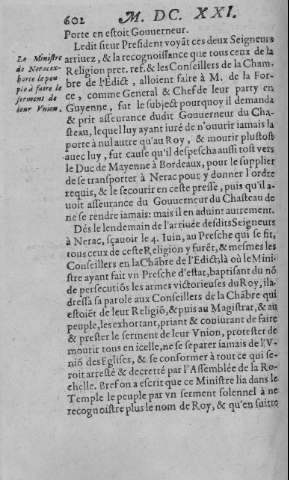 602 M. DC. XXI.
Porte en estoit Gouuerneur.
Ledit sieur President voyāt ces deux Seigneurs
arriuez, & la recognoissance que tous ceux de la
Religion pret. ref. & les Conseillers de la Cham-
bre de l'Edict, alloient faire à M. de la For-
ce, comme General & Chef de leur party en
Guyenne, fut le subject pourquoy il demanda
& prit asseurance dudit Gouuerneur du Cha-
steau, lequel luy ayant iuré de n'ouurir iamais la
porte à nul autre qu'au Roy, & mourir plustost
auec luy, fut cause qu'il despescha aussi tost vers
le Duc de Mayenne à Bordeaux, pour le supplier
de se transporter à Nerac pour y donner l'ordre
requis, & le secourir en ceste presse, puis qu'il a-
uoit asseurance du Gouuerneur du Chasteau de
ne se rendre iamais: mais il en aduint autrement.
Le Ministre
de Nerac ex-
horte le peu-
ple à faire le
serment de
leur Vnion.
Dés le lendemain de l'arriuée desdits Seigneurs
à Nerac, sçauoir le 4. Iuin, au Presche qui se fit,
tous ceux de ceste Religion y furēt, & mesmes les
Conseillers en la Chābre de l'Edict, là où le Mini-
stre ayant fait vn Presche d'estat, baptisant du nō
de persecutiōs les armes victorieuses du Roy, il a-
dressa sa parole aux Conseillers de la Chābre qui
estoiēt de leur Religiō, & puis au Magistrat, & au
peuple, les exhortant, priant & coniurant de faire
& prester le serment de leur Vnion, protester de
mourir tous en icelle, ne se separer iamais de l'V-
niō des Eglises, & se conformer à tout ce qui se-
roit arresté & decretté par l'Assemblée de la Ro-
chelle. Bref on a escrit que ce Ministre lia dans le
Temple le peuple par vn serment solennel à ne
recognoistre plus le nom de Roy, & qu'en suitte